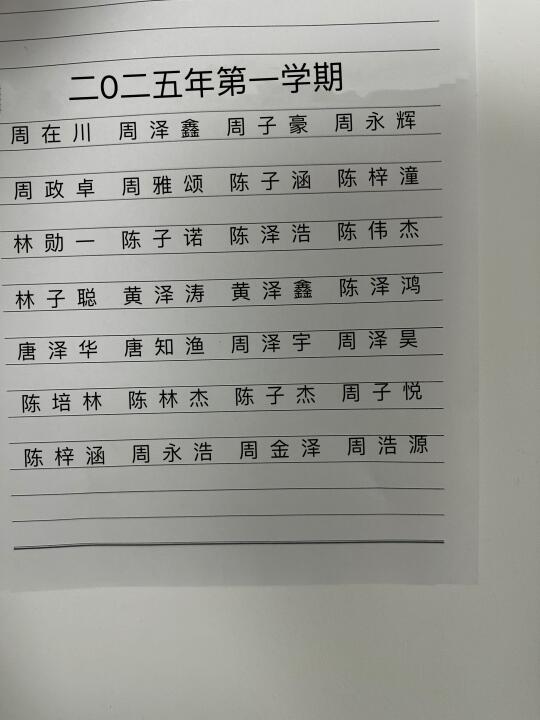 二0二五年第一学期
周在川 周泽鑫 周子豪 周永辉
周政卓 周雅颂 陈子涵 陈梓潼
林勋一 陈子诺 陈泽浩 陈伟杰
林子聪 黄泽涛 黄泽鑫 陈泽鸿
唐泽华 唐知渔 周泽宇 周泽昊
陈培林 陈林杰 陈子杰 周子悦
陈梓涵 周永浩 周金泽 周浩源